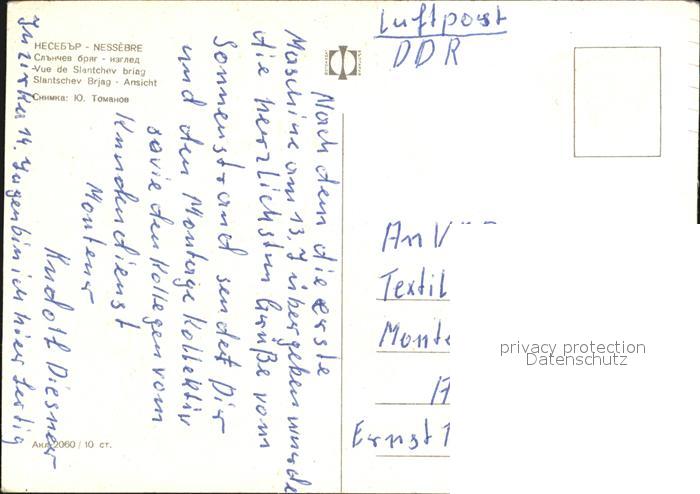 НЕСЕБЪР - NESSÈBRE
Слънчев бряг - изглед
-Vue de Slantchev briag
Slantschev Brjag - Ansicht
Снимка: Ю. Томанов
Nach dem die erste
Maschine am 13.7 übergeben wurde
die herzlichsten Grüße vom
Sonnenstrand sendet Dir
und den Montage Kollektiv
sowie den Kollegen vom
Kundendienst
Monteur
Rudolf Diesner
14. Tagen bin ich hier fertig
Акл 2060 / 10 ст.
Luftpost
DDR
An V
Textil
Monte
Ernst T
privacy protection
Datenschutz